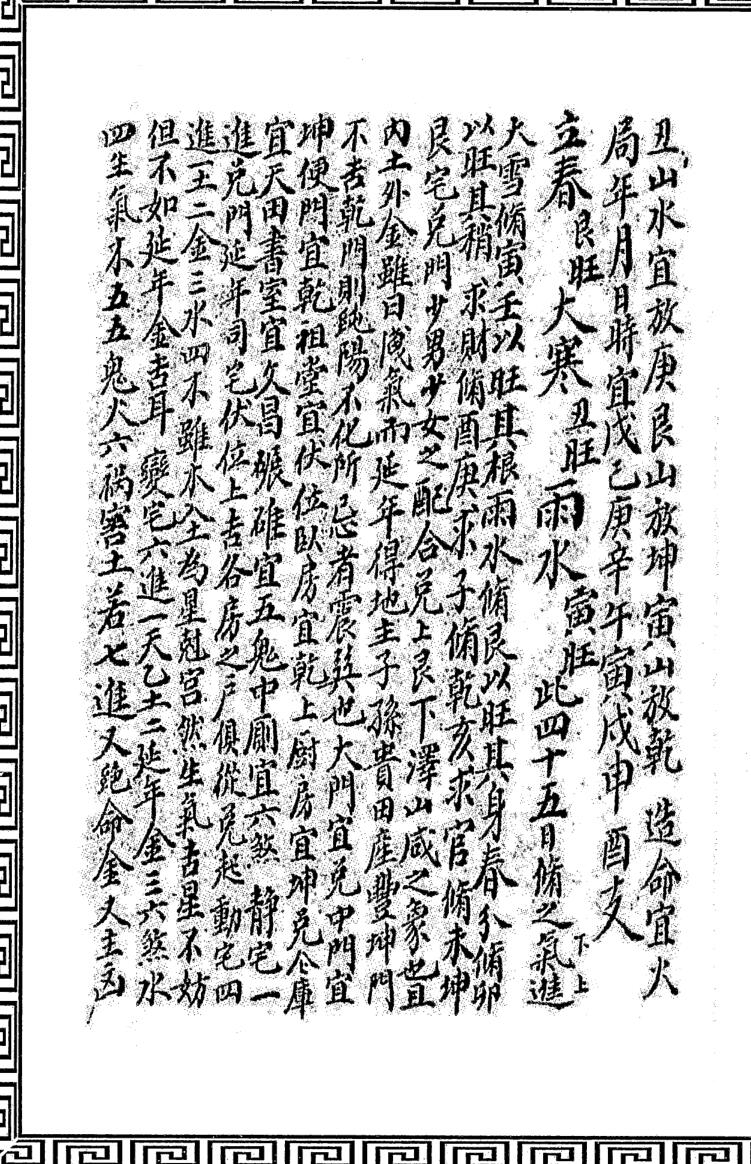 丑山水宜放庚艮山放坤寅山放乾 造命宜火
局年月日時宜戊己庚辛午寅戌申酉支
立春艮旺大寒丑旺雨水寅旺此四十五日脩之氣進下上
大雪脩寅壬以旺其根雨水脩艮以旺其身春分脩卯
以旺其稍 求財脩酉庚求子脩乾亥求官脩未坤
艮宅兌門少男少女之配合兌上艮下澤山咸之象也且
內土外金雖曰洩氣而延年得地主子孫貴田産豐坤門
不吉乾門則純陽不化所忌者震巽也大門宜兌中門宜
坤便門宜乾祖堂宜伏位臥房宜乾上厨房宜坤兌仝庫
宜天田書室宜文昌碾碓宜五鬼中厠宜六煞 静宅一
進兌門延年司宅伏位上吉各房之戶俱從兌起動宅四
進一土二金三水四木雖木入土為星尅宮然生氣吉星不妨
但不如延年金吉耳 變宅六進一天乙土二延年金三六煞水
四生氣木五五鬼火六禍害土若七進又絕命金又主凶